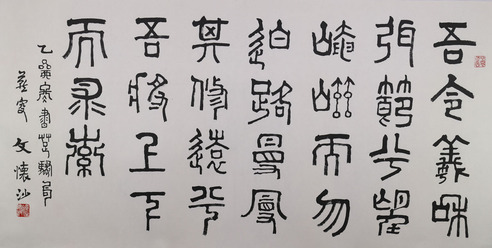 吾令羲和
弭節兮望
崦嵫而勿
迫路曼曼
其修遠兮
吾將上下
而求索
乙 書楚騷句
燕叟 文懷沙